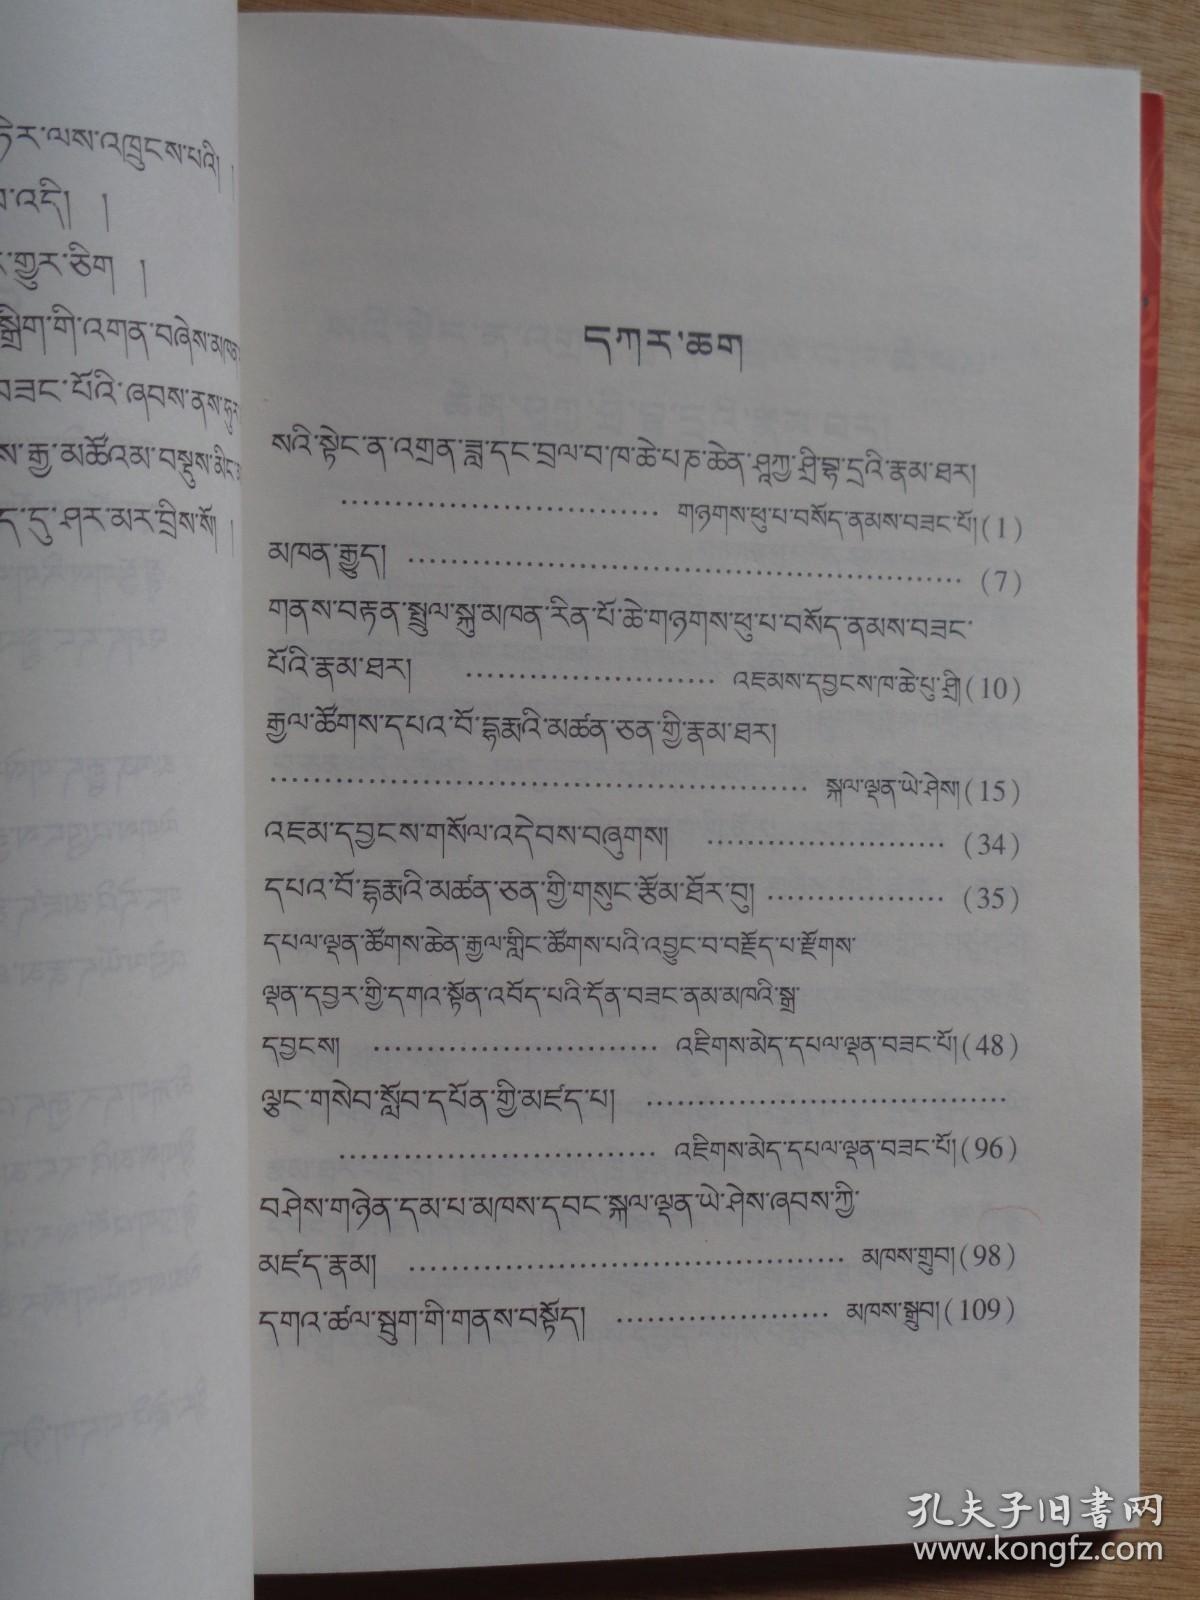 ཏེར་ལས་འཁྲུངས་པའི། །
འདི། །
གྱུར་ཅིག །
སྒྲིག་གི་འགན་བཞེས་མཁན་
བཟང་པོའི་ཞབས་ནས་
ས་རྒྱ་མཚོའམ་བསྡུས་མིང་
ད་དུ་ཤར་མར་བྲིས་སོ། །
དཀར་ཆག
སའི་སྟེང་ན་འགྲན་ཟླ་དང་བྲལ་བ་ཁ་ཆེ་པཎ་ཆེན་ཤཱཀྱ་ཤྲཱི་བྷ་དྲའི་རྣམ་ཐར།
································ གཉགས་ཕུ་པ་བསོད་ནམས་བཟང་པོ།(1)
མཁན་རྒྱུད། ······················································ (7)
གནས་བརྟན་སྤྲུལ་སྐུ་མཁན་རིན་པོ་ཆེ་གཉགས་ཕུ་པ་བསོད་ནམས་བཟང་
པོའི་རྣམ་ཐར། ························· འཇམས་དབྱངས་ཁ་ཆེ་པུ་ཤྲཱི།(10)
རྒྱལ་ཚོགས་དཔའ་བོ་དྷརྨའི་མཚན་ཅན་གྱི་རྣམ་ཐར།
······················································ སྐལ་ལྡན་ཡེ་ཤེས།(15)
འཇམ་དབྱངས་གསོལ་འདེབས་བཞུགས། ························ (34)
དཔའ་བོ་དྷརྨའི་མཚན་ཅན་གྱི་གསུང་རྩོམ་ཐོར་བུ། ·················· (35)
དཔལ་ལྡན་ཚོགས་ཆེན་རྒྱལ་གླིང་ཚོགས་པའི་འབྱུང་བ་བརྗོད་པ་རྫོགས་
ལྡན་དབྱར་གྱི་དགའ་སྟོན་འབོད་པའི་དོན་བཟང་ནམ་མཁའི་སྒྲ་
དབྱངས། ····························· འཇིགས་མེད་དཔལ་ལྡན་བཟང་པོ།(48)
ལྕང་གསེབ་སློབ་དཔོན་གྱི་མཛད་པ། ····································
································ འཇིགས་མེད་དཔལ་ལྡན་བཟང་པོ།(96)
བཤེས་གཉེན་དམ་པ་མཁས་དབང་སྐལ་ལྡན་ཡེ་ཤེས་ཞབས་ཀྱི་
མཛད་རྣམ། ············································ མཁས་གྲུབ།(98)
དགའ་ཚལ་སྦུག་གི་གནས་བསྟོད། ····················· མཁས་སྒྲུབ།(109)
孔夫子旧书网
www.kongfz.com